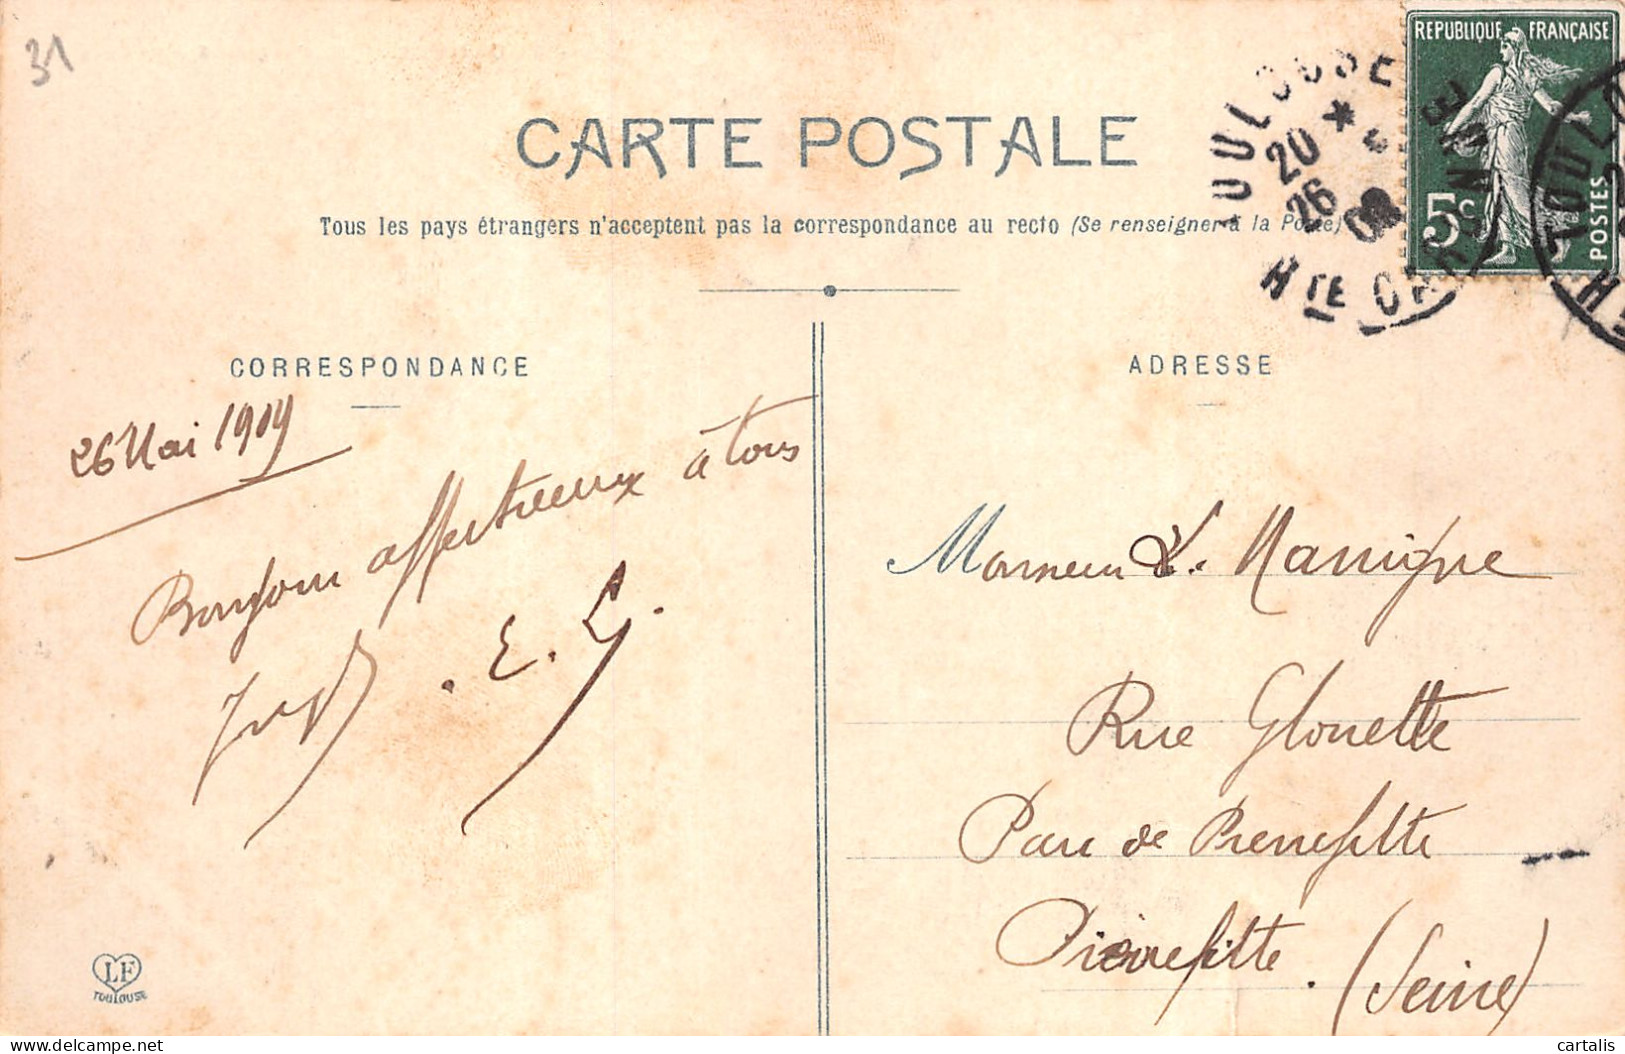 31
CARTE POSTALE
Tous les pays étrangers n'acceptent pas la correspondance au recto (Se renseigner à la Poste)
REPUBLIQUE FRANÇAISE
5c
POSTES
TOULOUSE
20
26
09
HTE GARONNE
CORRESPONDANCE
ADRESSE
26 Mai 1909
Bonjour affectueux à tous
. E. G.
Monsieur L. Manigne
Rue Glouette
Parc de Pierrefitte
Pierrefitte.
(Seine)
LF
TOULOUSE
delcampe.net
cartalis